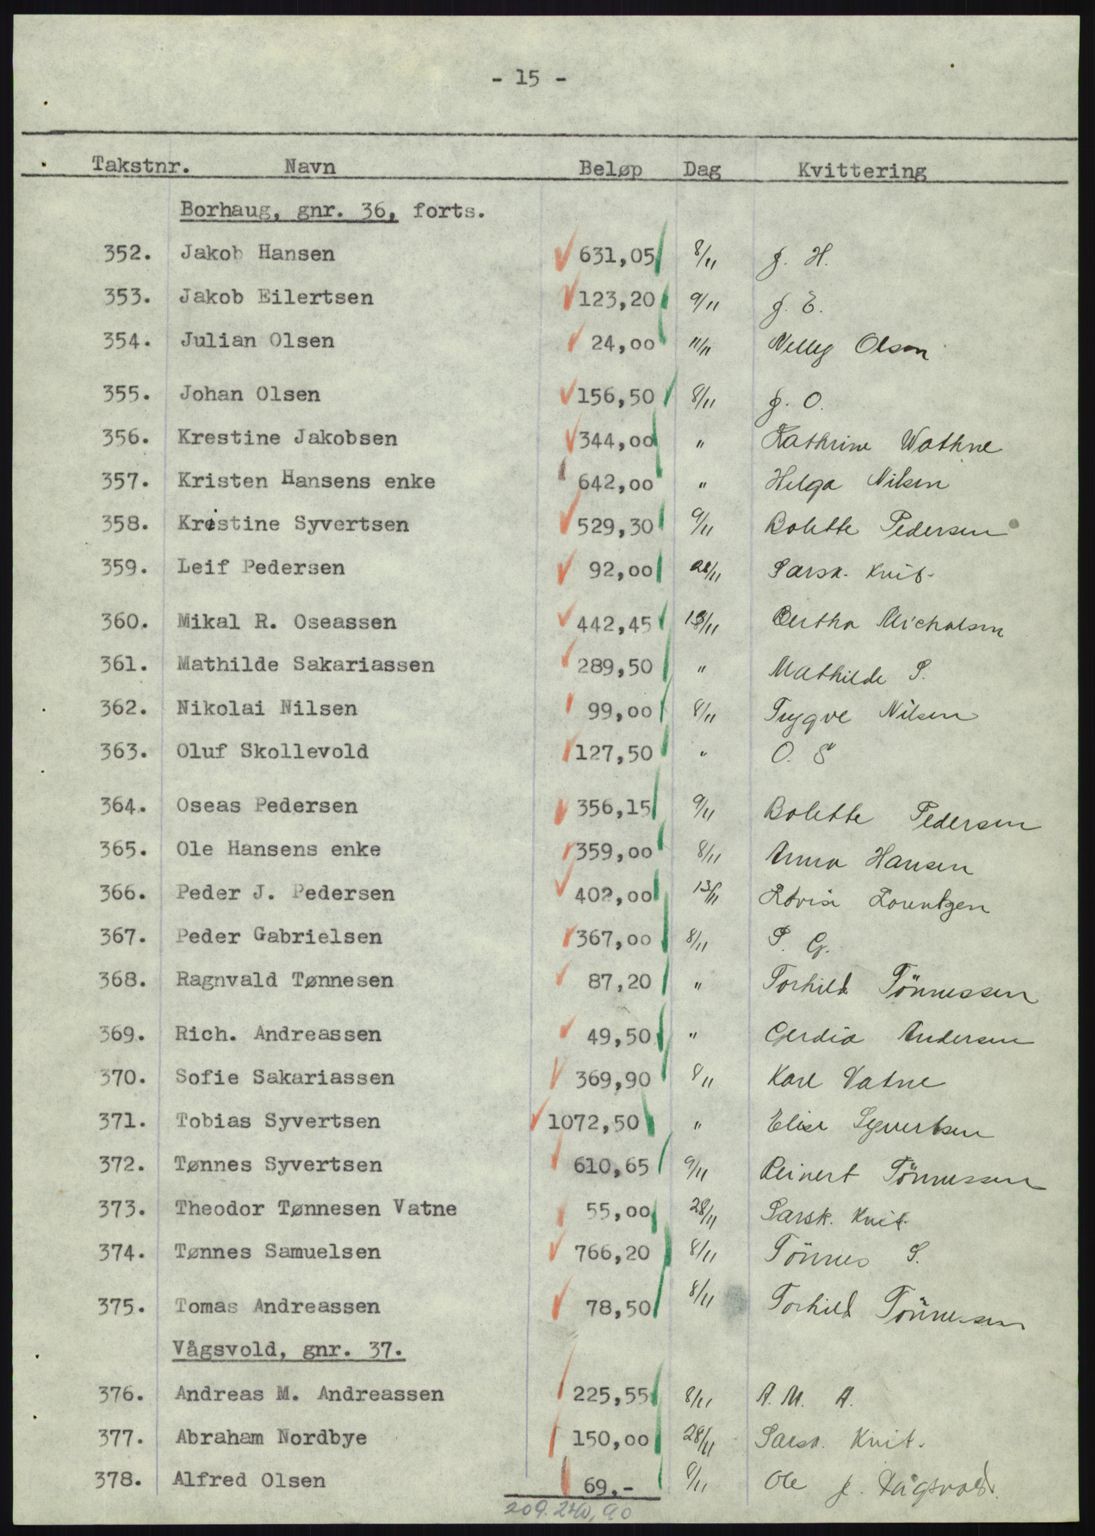 - 15 -
Takstnr. Navn Beløp Dag Kvittering
Borhaug, gnr. 36, forts.
352. Jakob Hansen 631,05 8/11 J. H.
353. Jakob Eilertsen 123,20 9/11 J. E.
354. Julian Olsen 24,00 11/11 Nelly Olsen
355. Johan Olsen 156,50 8/11 J. O.
356. Krestine Jakobsen 344,00 " Kathrine Wathne
357. Kristen Hansens enke 642,00 " Helga Nilsen
358. Krestine Syvertsen 529,30 9/11 Bolette Pedersen
359. Leif Pedersen 92,00 28/11 Særsk. Kvit.
360. Mikal R. Oseassen 442,45 13/11 Bertha Michalsen
361. Mathilde Sakariassen 289,50 " Mathilde S.
362. Nikolai Nilsen 99,00 8/11 Trygve Nilsen
363. Oluf Skollevold 127,50 " O. S
364. Oseas Pedersen 356,15 9/11 Bolette Pedersen
365. Ole Hansens enke 359,00 8/11 Anna Hansen
366. Peder J. Pedersen 402,00 13/11 Lorentzen
367. Peder Gabrielsen 367,00 8/11 P. G.
368. Ragnvald Tønnesen 87,20 " Torhild Tönnessen
369. Rich. Andreassen 49,50 " Gerdia Andersen
370. Sofie Sakariassen 369,90 8/11 Kare Vatne
371. Tobias Syvertsen 1072,50 " Elise Syvertsen
372. Tønnes Syvertsen 610,65 9/11 Reinert Tönnessen
373. Theodor Tønnesen Vatne 55,00 28/11 Særsk. Kvit.
374. Tønnes Samuelsen 766,20 8/11 Tönnes S.
375. Tomas Andreassen 78,50 8/11 Torhild Tönnesen
Vågsvold, gnr. 37.
376. Andreas M. Andreassen 225,55 8/11 A. M. A.
377. Abraham Nordbye 150,00 28/11 Særsk. Kvit.
378. Alfred Olsen 69.- 8/11 Ole J. Vågsvold
209.240,90